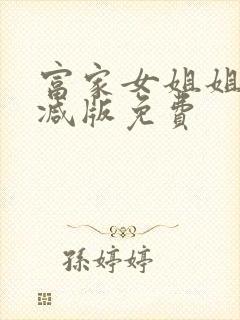 富家女姐姐
减版免费
孫婷婷